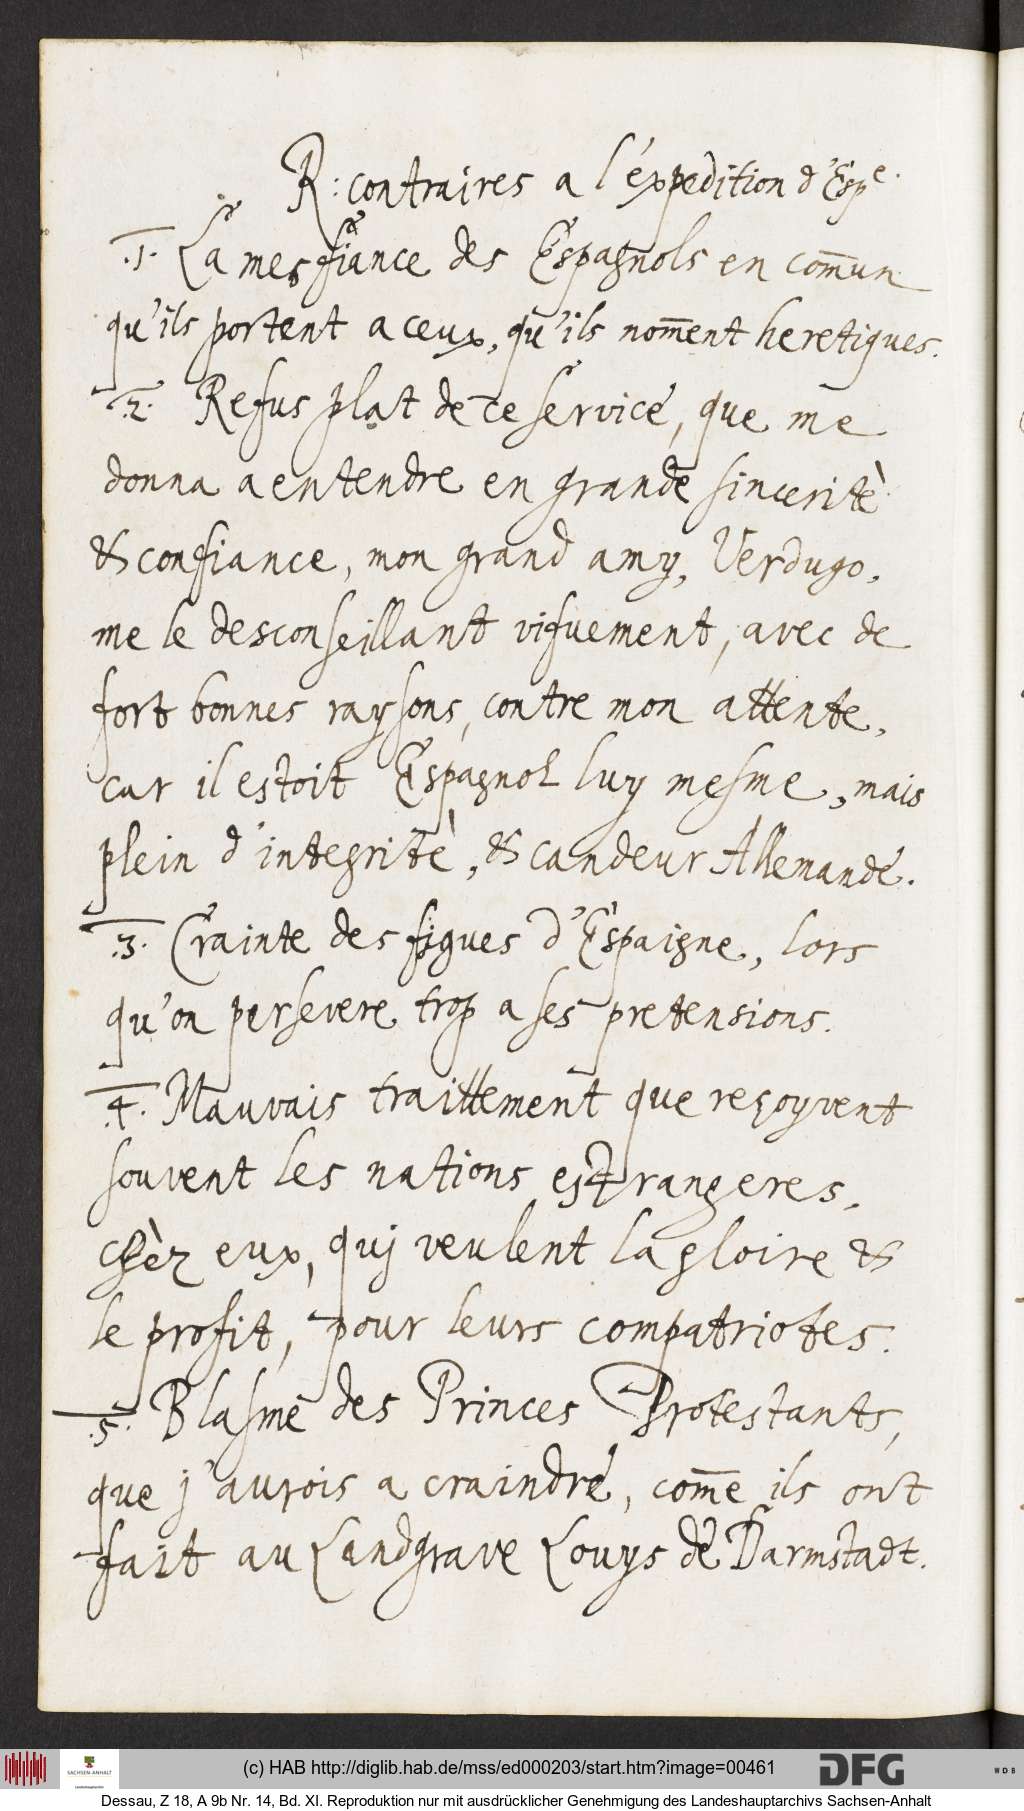 R: contraires a l'éxpedition d'Esp.e
.1. La mesfiance des Espagnols en com̄un
qu'ils portent a ceux, qu'ils nom̄ent heretiques.
.2. Refus plat de ce service, que me
donna a entendre en grande sinceritè
& confiance, mon grand amy, Verdugo,
me le desconseillant vifuement, avec de
fort bonnes raysons, contre mon attente,
car il estoit Espagnol luy mesme, mais
plein d'integritè, & candeur Allemande.
.3. Crainte des figues d'Espaigne, lors
qu'on persevere trop a ses pretensions.
.4. Mauvais traittement que reçoyvent
souvent les nations estrangeres,
chèz eux, quj veulent la gloire &
le profit, pour leurs compatriotes.
.5. Blasme des Princes Protestants,
que j'aurois a craindre, com̄e ils ont
fait au Landgrave Louys de Darmstadt.
SACHSEN-ANHALT
Landeshauptarchiv
(c) HAB http://diglib.hab.de/mss/ed000203/start.htm?image=00461
DFG
WDB
Dessau, Z 18, A 9b Nr. 14, Bd. XI. Reproduktion nur mit ausdrücklicher Genehmigung des Landeshauptarchivs Sachsen-Anhalt